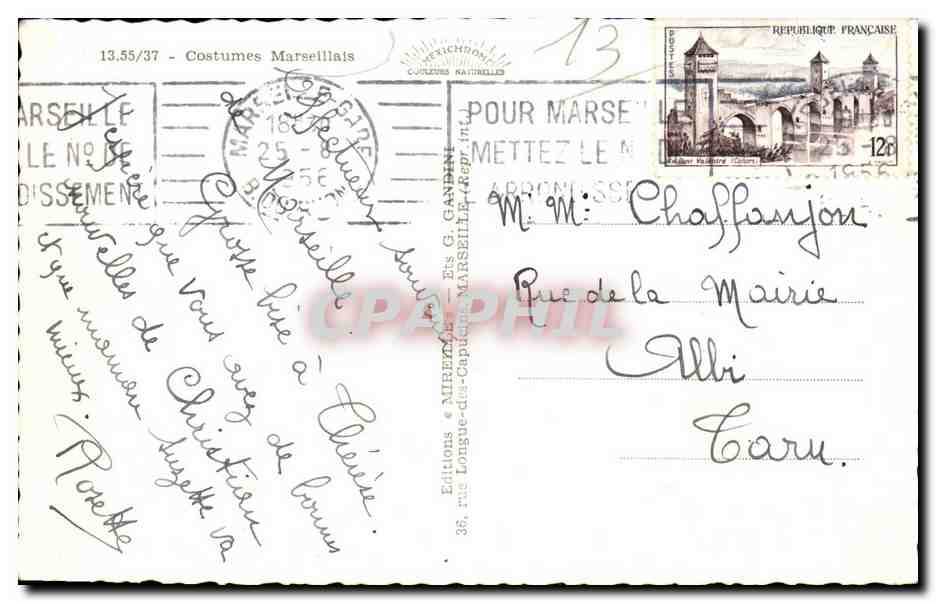 13.55/37 - Costumes Marseillais
MEXICHROME
COULEURS NATURELLES
13
REPUBLIQUE FRANÇAISE
POSTES
12F
Pont Valentré (Cahors)
MARSEILLE GARE
25 -
1956
ARSEILLE
LE No DE
DISSEMENT
POUR MARSEILLE
METTEZ LE N
ARRONDISSE
Affectueux souvenir
de Marseille
Grosse bise à Thérèse.
J'espère que vous avez de bonnes
nouvelles de Christian
et que maman Suzette va
mieux. Rosette
Editions « MIREILLE » — Ets G. GANDINI
36, rue Longue-des-Capucins, MARSEILLE (Repr. int.)
M. Me Chaffanjon
Rue de la Mairie
Albi
Tarn.
CPAPHIL